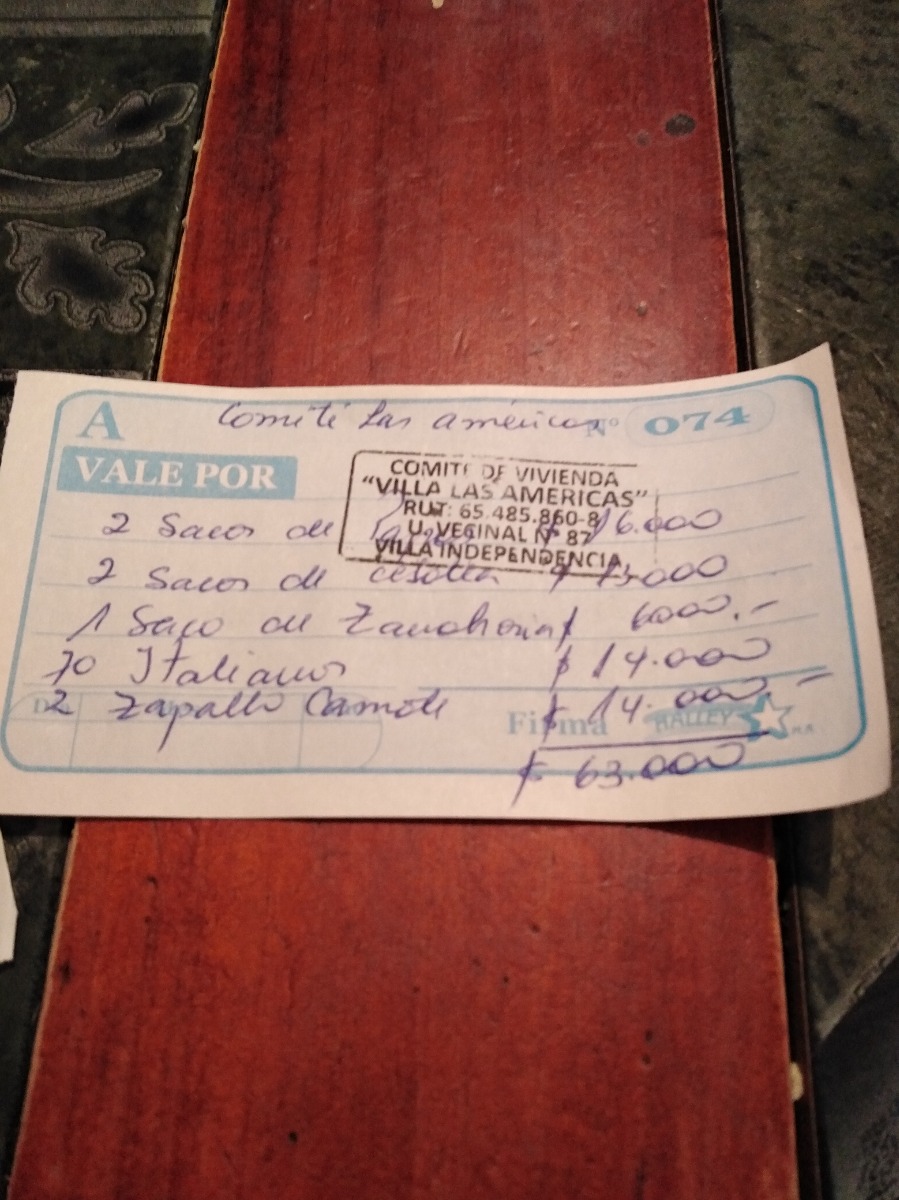 A
Comité Las américas Nº 074
VALE POR
COMITE DE VIVIENDA
“VILLA LAS AMERICAS”
RUT: 65.485.860-8
U. VECINAL Nº 87
VILLA INDEPENDENCIA
2 Sacos de $ 16.000
2 Sacos de cebolla $ 13.000
1 Saco de Zanahoria $ 6000.-
70 Italianos $ 14.000
2 Zapallo Camote $ 14.000.-
Firma HALLEY
$ 63.000